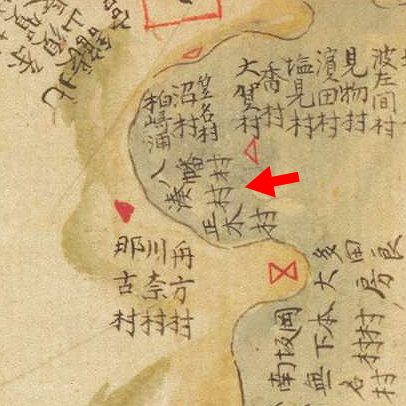 波左間村
見物村
濱田村
塩見村
香村
大賀村
笠名村
沼村
柏崎浦
八幡村
湊村
正木村
那古村
川奈村
舟方村
多田良
大房
岡本村
坂下村
南無名村